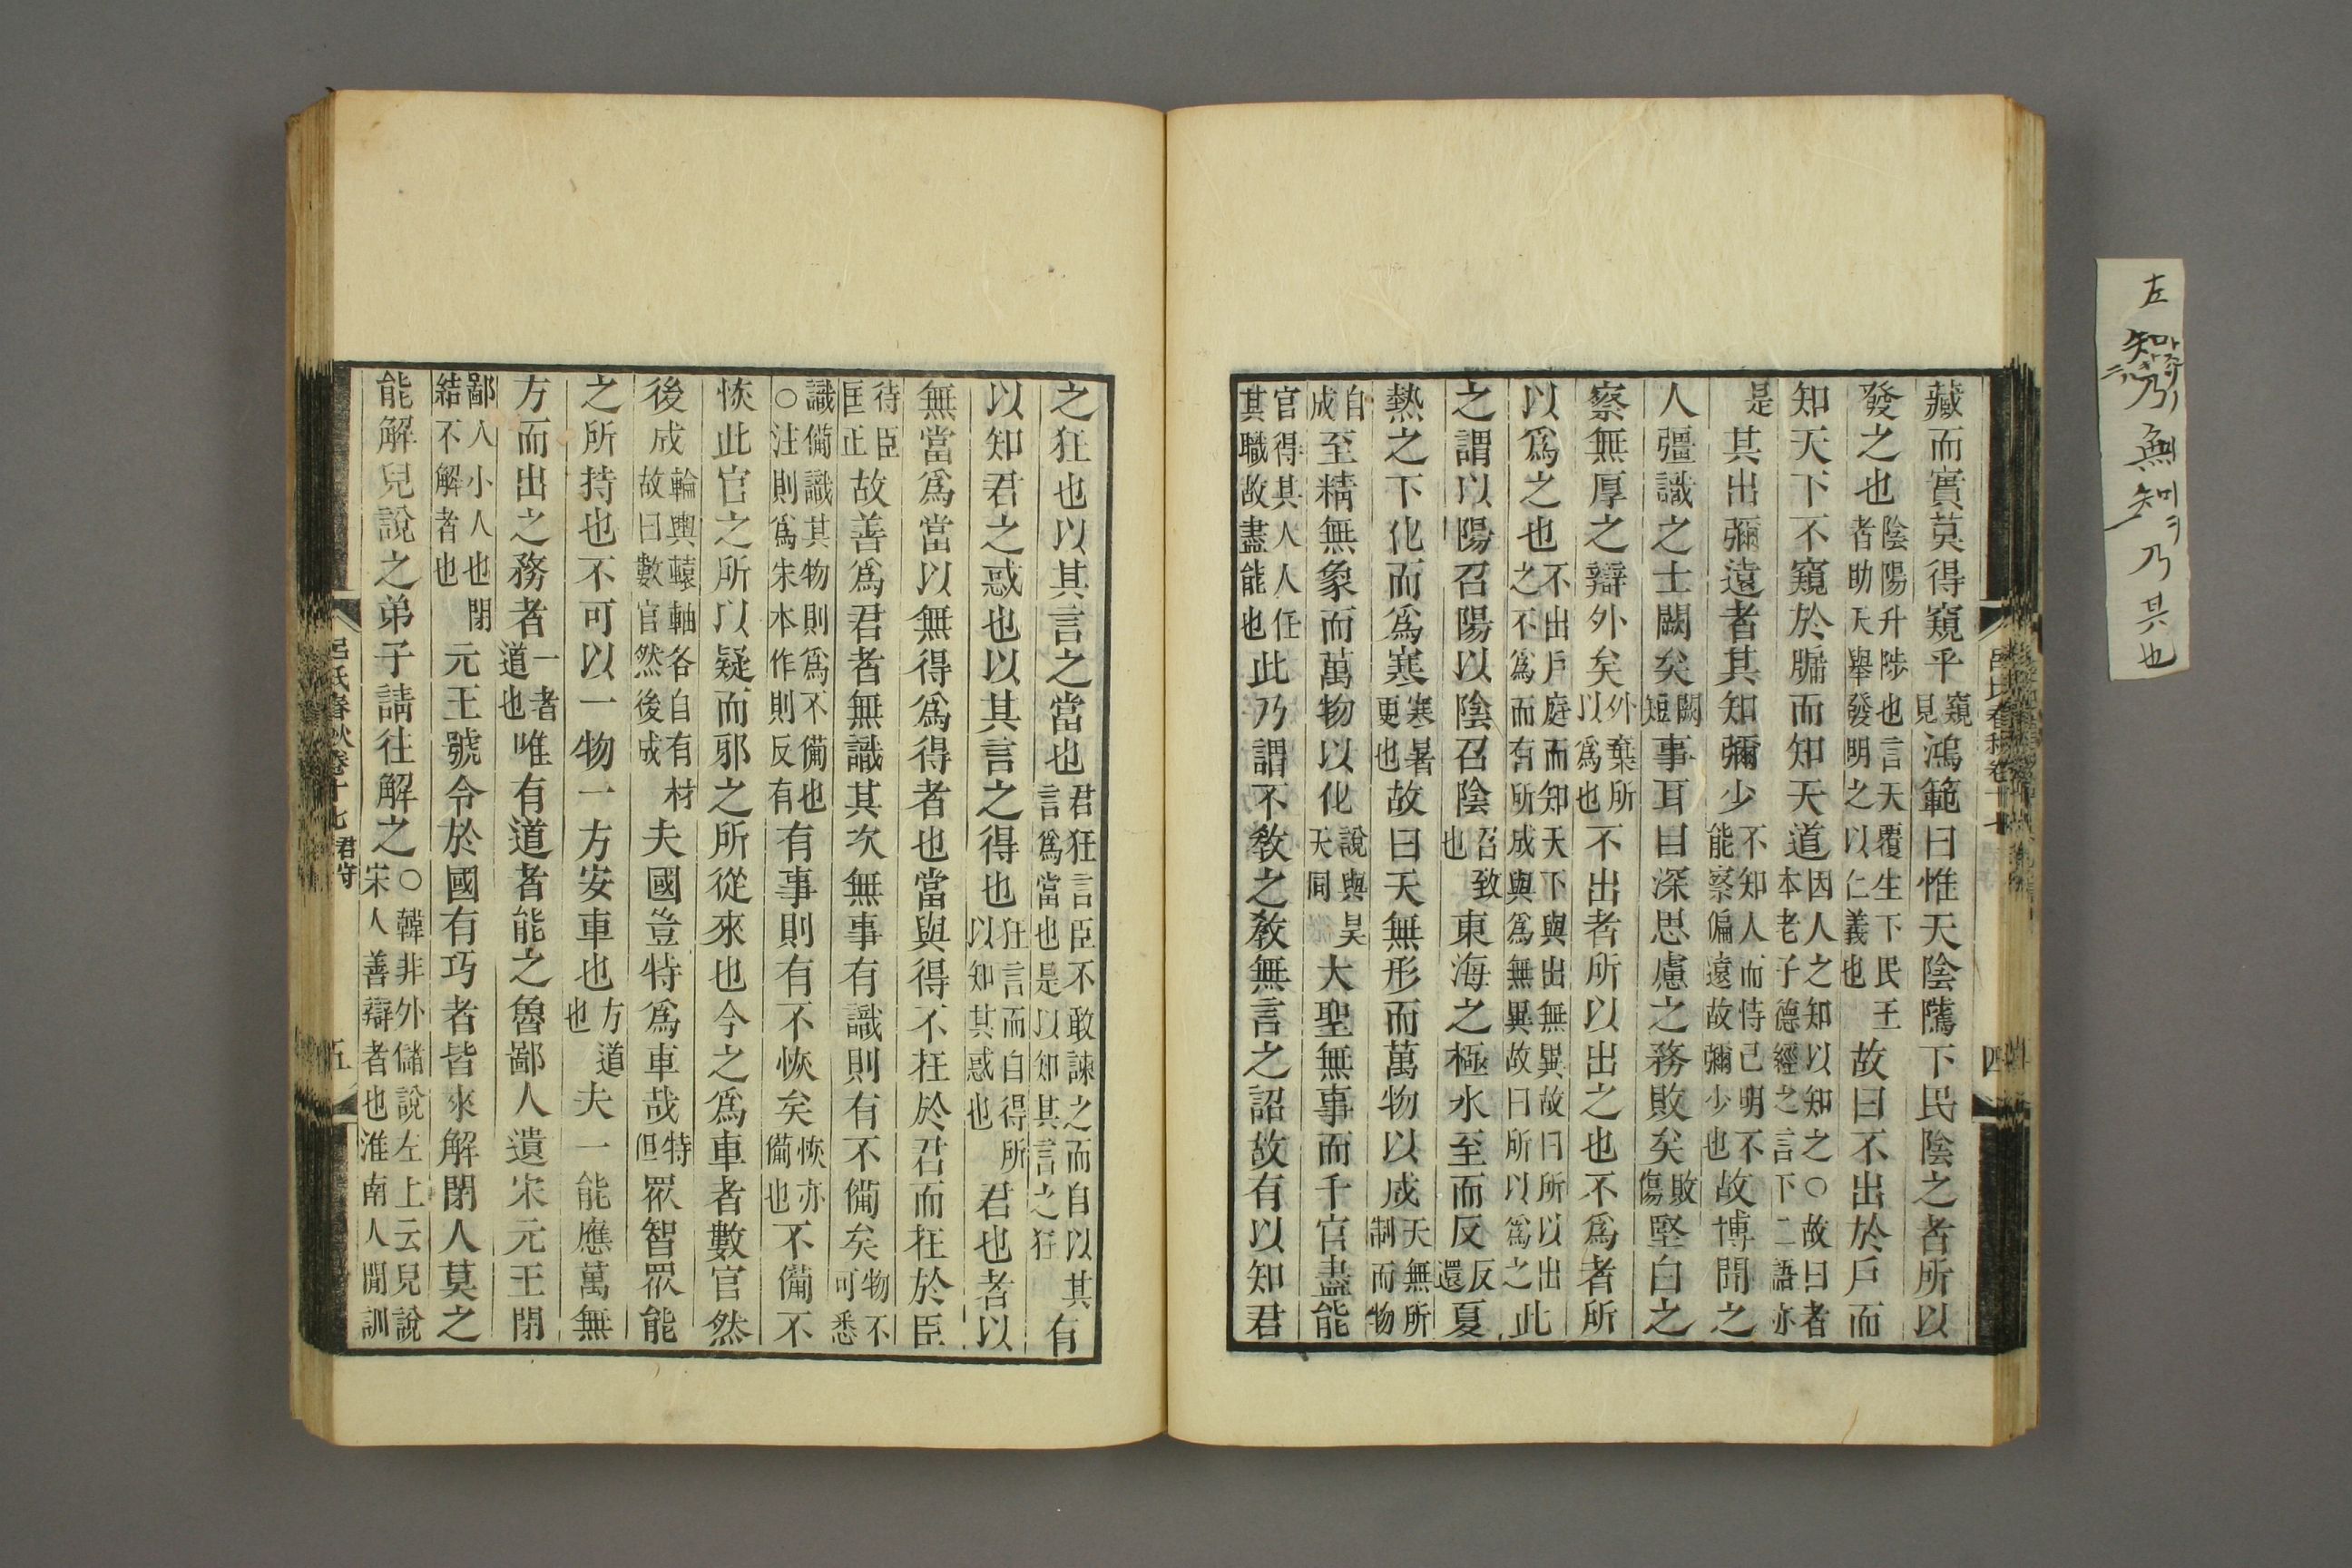 藏而實莫得窺乎窺見鴻範曰惟天陰隲下民陰之者所以
發之也陰陽升陟也言天覆生下民王者助天舉發明之以仁義也故曰不出於戶而
知天下不窺於牖而知天道因人之知以知之○故曰者本老子德經之言下二語亦
是其出彌遠者其知彌少不知人而恃己明不能察偏遠故彌少也故博聞之
人彊識之士闕矣闕短事耳目深思慮之務敗矣敗傷堅白之
察無厚之辯外矣外棄所以爲也不出者所以出之也不爲者所
以爲之也不出戶庭而知天下與出無異故曰所以出之不爲而有所成與爲無異故曰所以爲之此
之謂以陽召陽以陰召陰召致也東海之極水至而反反還夏
熱之下化而爲寒寒暑更也故曰天無形而萬物以成天無所制而物
自成至精無象而萬物以化說與昊天同大聖無事而千官盡能
官得其人人任其職故盡能也此乃謂不教之教無言之詔故有以知君
之狂也以其言之當也君狂言臣不敢諫之而自以其言爲當也是以知其言之狂有
以知君之惑也以其言之得也狂言而自得所以知其惑也君也者以
無當爲當以無得爲得者也當與得不在於君而在於臣
待臣匡正故善爲君者無識其次無事有識則有不備矣物不可悉
識備識其物則爲不備也○注則爲朱本作則反有有事則有不恢矣恢亦備也不備不
恢此官之所以疑而邪之所從來也今之爲車者數官然
後成輪輿轅軸各自有材故曰數官然後成夫國豈特爲車哉特但眾智眾能
之所持也不可以一物一方安車也方道也夫一能應萬無
方而出之務者一者道也唯有道者能之魯鄙人遺宋元王閉
鄙人小人也閉結不解者也元王號令於國有巧者皆來解閉人莫之
能解兒說之弟子請往解之○韓非外儲說左上云兒說宋人善辯者也淮南人閒訓
呂氏春秋卷十七 君守
五
四